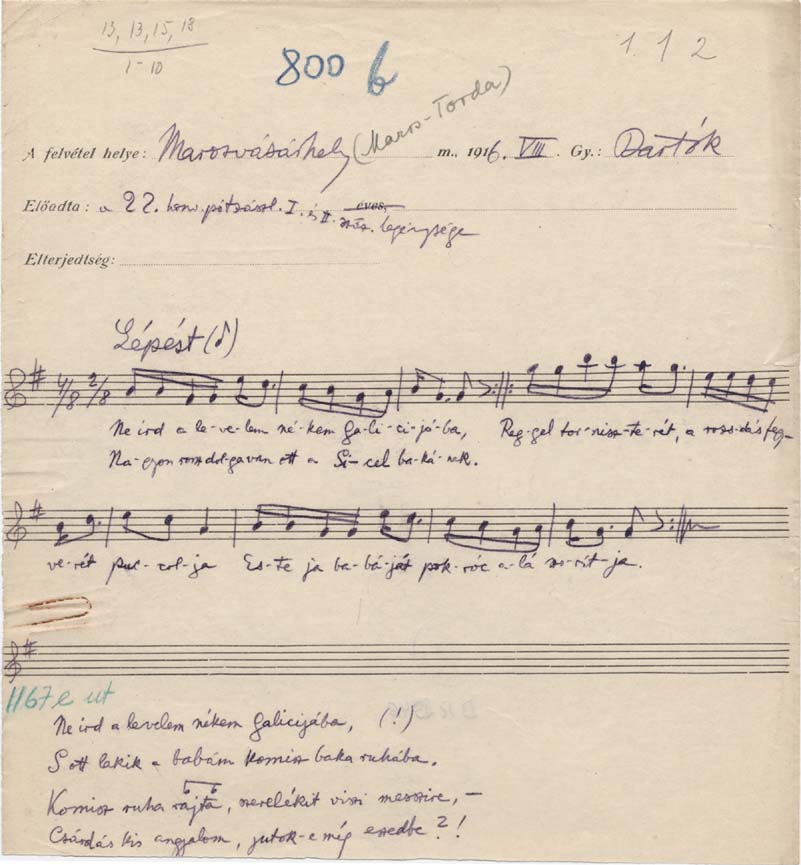 13, 13, 15, 18
1-10
800 b
1.12
A felvétel helye: Marosvásárhely (Maros-Torda) m., 1916. VIII. Gy.: Bartók
Előadta: a 22. honv. pótzászl. I. és II. éves
szás. legénysége
Elterjedtség:
Lépést (♪)
4/8 2/8
Ne ird a le-ve-lem né-kem Ga-li-ci-já-ba, Reg-gel tor-nisz-te-rét, a rozs-dás fegy-
Na-gyon rossz dol-ga van ott a Si-cel ba-ká-nak.
ve-rét puc-col-ja Es-te ja ba-bá-ját pok-róc a-lá szo-rit-ja.
1167e ut
Ne ird a levelem nékem Galicijába, (!)
S ott lakik a babám komisz baka ruhába.
Komisz ruha rajta, szerelékit viszi messzire, –
Csárdás kis angyalom, jutok-e még eszedbe?!